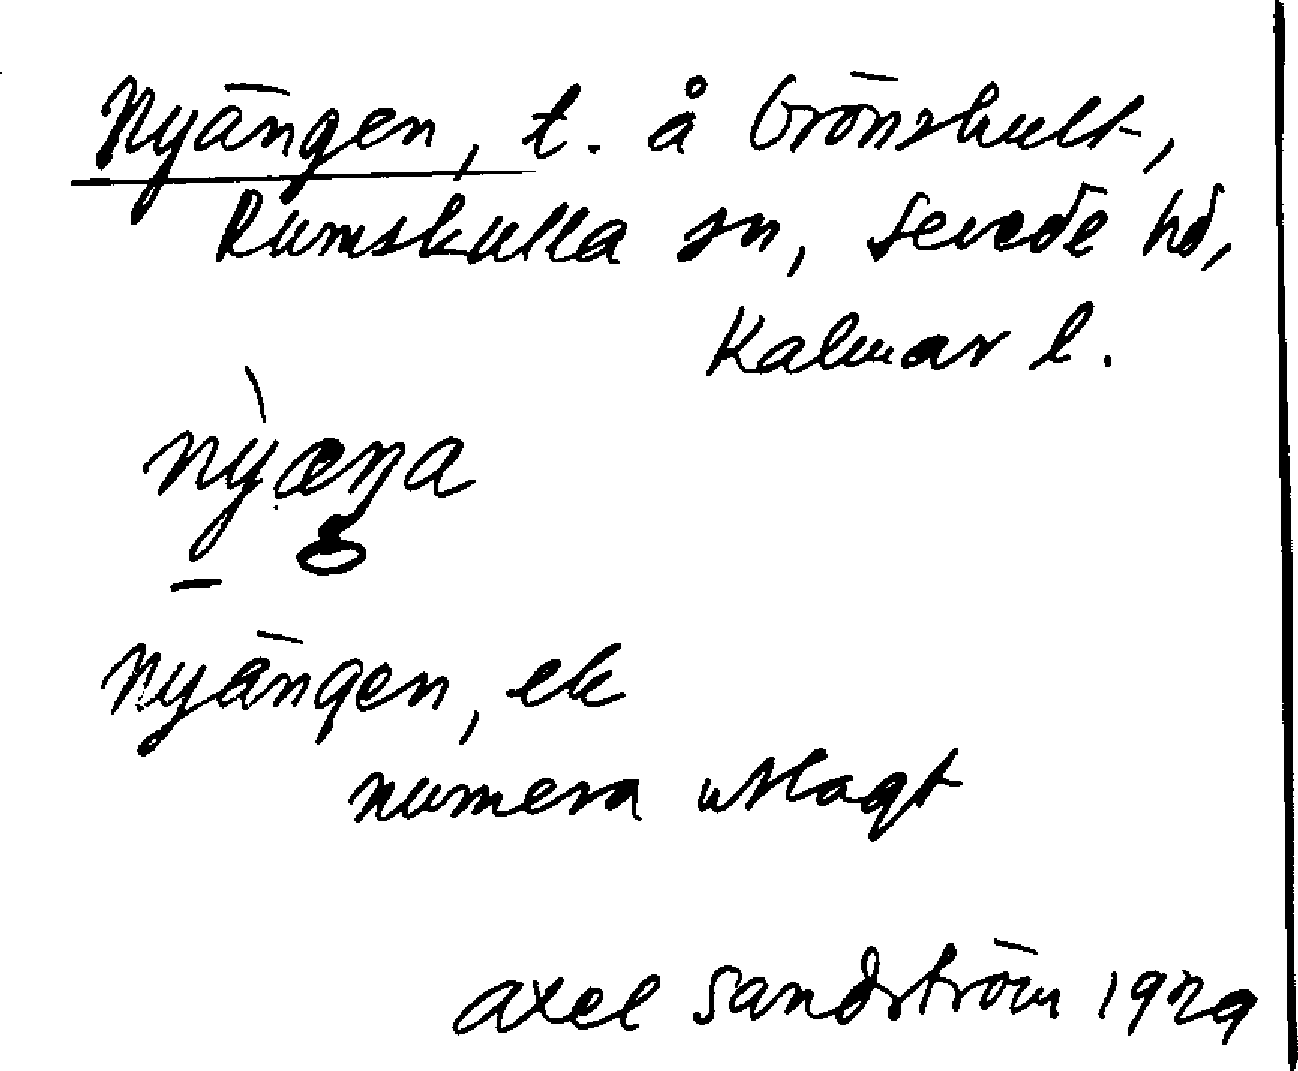 Nyängen, t. å Grönskult,
Rumskulla sn, Sevede hd,
Kalmar l.
nỳæŋa
Nyängen, ek
numera utlagt
Axel Sandström 1929